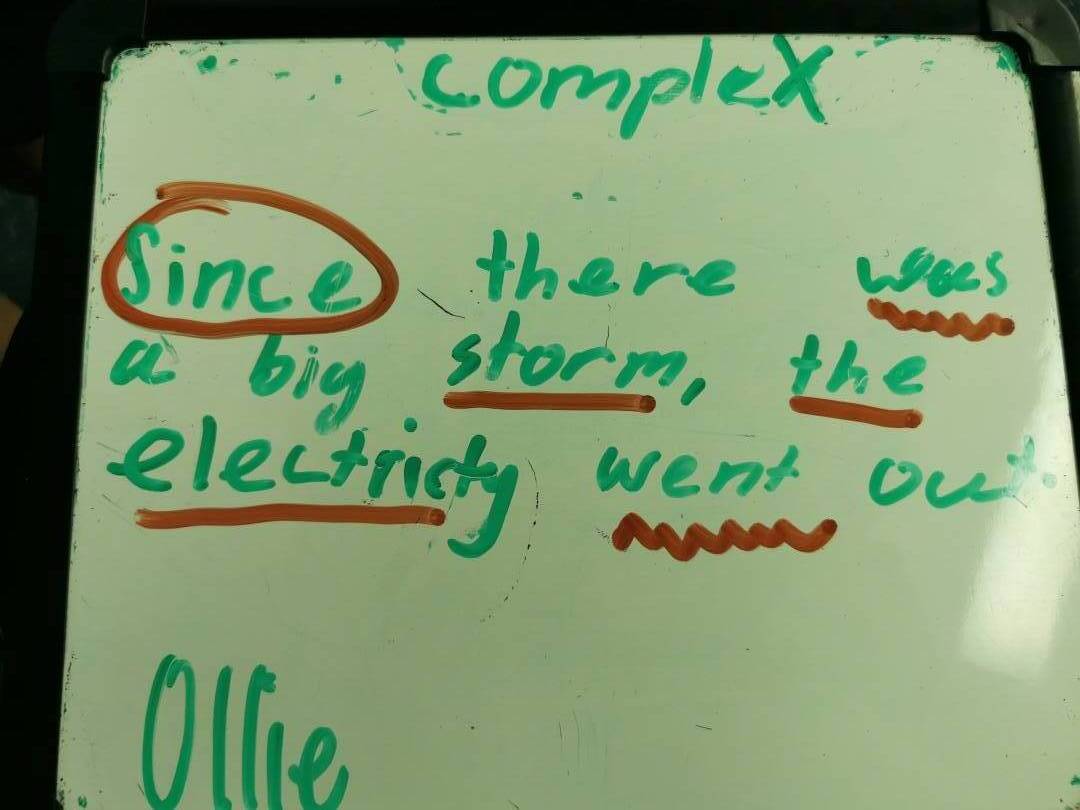 complex
Since there was
a big storm, the
electricty went out.
Ollie